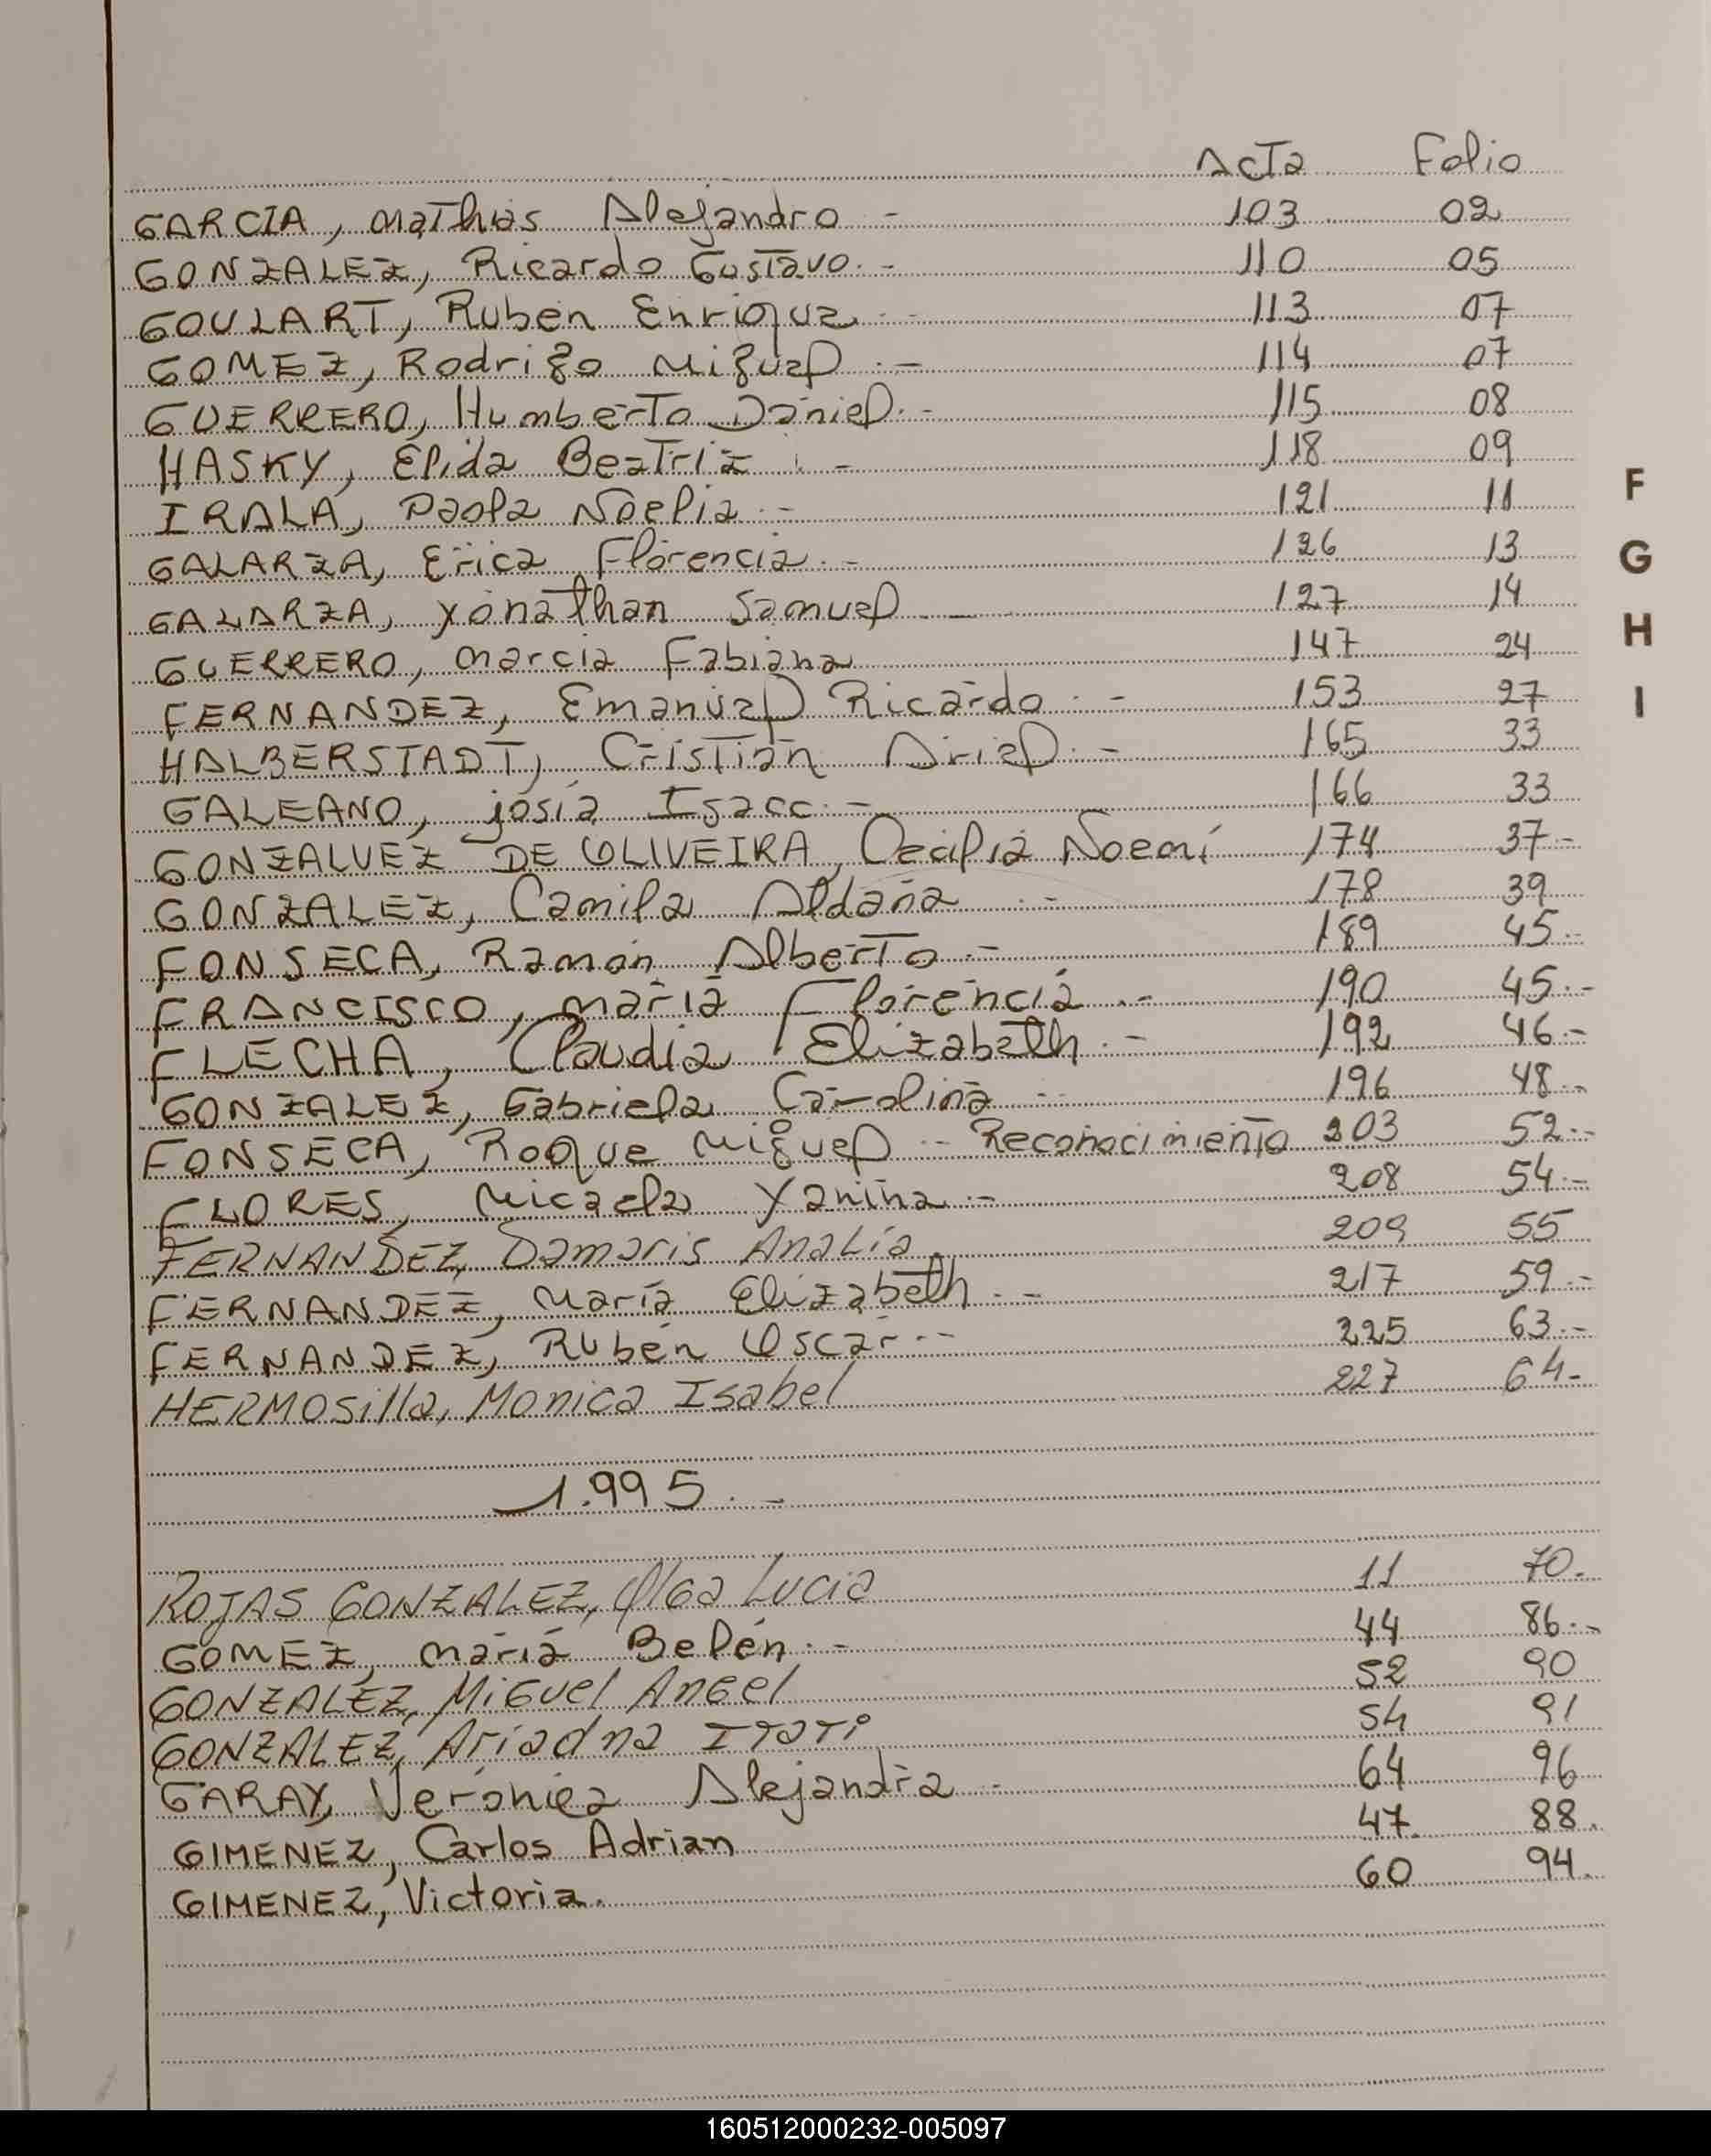 Acta Folio
GARCIA, Mathias Alejandro - 103 02
GONZALEZ, Ricardo Gustavo.- 110 05
GOULART, Ruben Enrique.- 113 07
GOMEZ, Rodrigo Miguel.- 114 07
GUERRERO, Humberto Daniel.- 115 08
HASKY, Elida Beatriz.- 118 09
IRALA, Paola Noelia.- 121 11
GALARZA, Erica Florencia.- 126 13
GALARZA, Yonathan Samuel - 127 14
GUERRERO, Marcia Fabiana 147 24
FERNANDEZ, Emanuel Ricardo.- 153 27
HALBERSTADT, Cristian Ariel.- 165 33
GALEANO, Josia Isacc.- 166 33
GONZALVEZ DE OLIVEIRA, Cecilia Noemí 174 37-
GONZALEZ, Camila Aldana.- 178 39
FONSECA, Ramón Alberto.- 189 45.-
FRANCISCO, María Florencia.- 190 45.-
FLECHA, Claudia Elizabeth.- 192 46.-
GONZALEZ, Gabriela Carolina.- 196 48.-
FONSECA, Roque Miguel.- Reconocimiento 203 52.-
FLORES, Micaela Yanina.- 208 54.-
FERNANDEZ, Damaris Analía 209 55
FERNANDEZ, María Elizabeth.- 217 59.-
FERNANDEZ, Rubén Oscar.- 225 63.-
HERMOSilla, Monica Isabel 227 64-
1.995.-
ROJAS GONZALEZ, Olga Lucia 11 70.
GOMEZ, María Belén.- 44 86.-
GONZALEZ, Miguel Angel 52 90
GONZALEZ, Ariadna Itati 54 91
GARAY, Verónica Alejandra - 64 96
GIMENEZ, Carlos Adrian 47. 88.
GIMENEZ, Victoria. 60 94.
F
G
H
I
160512000232-005097